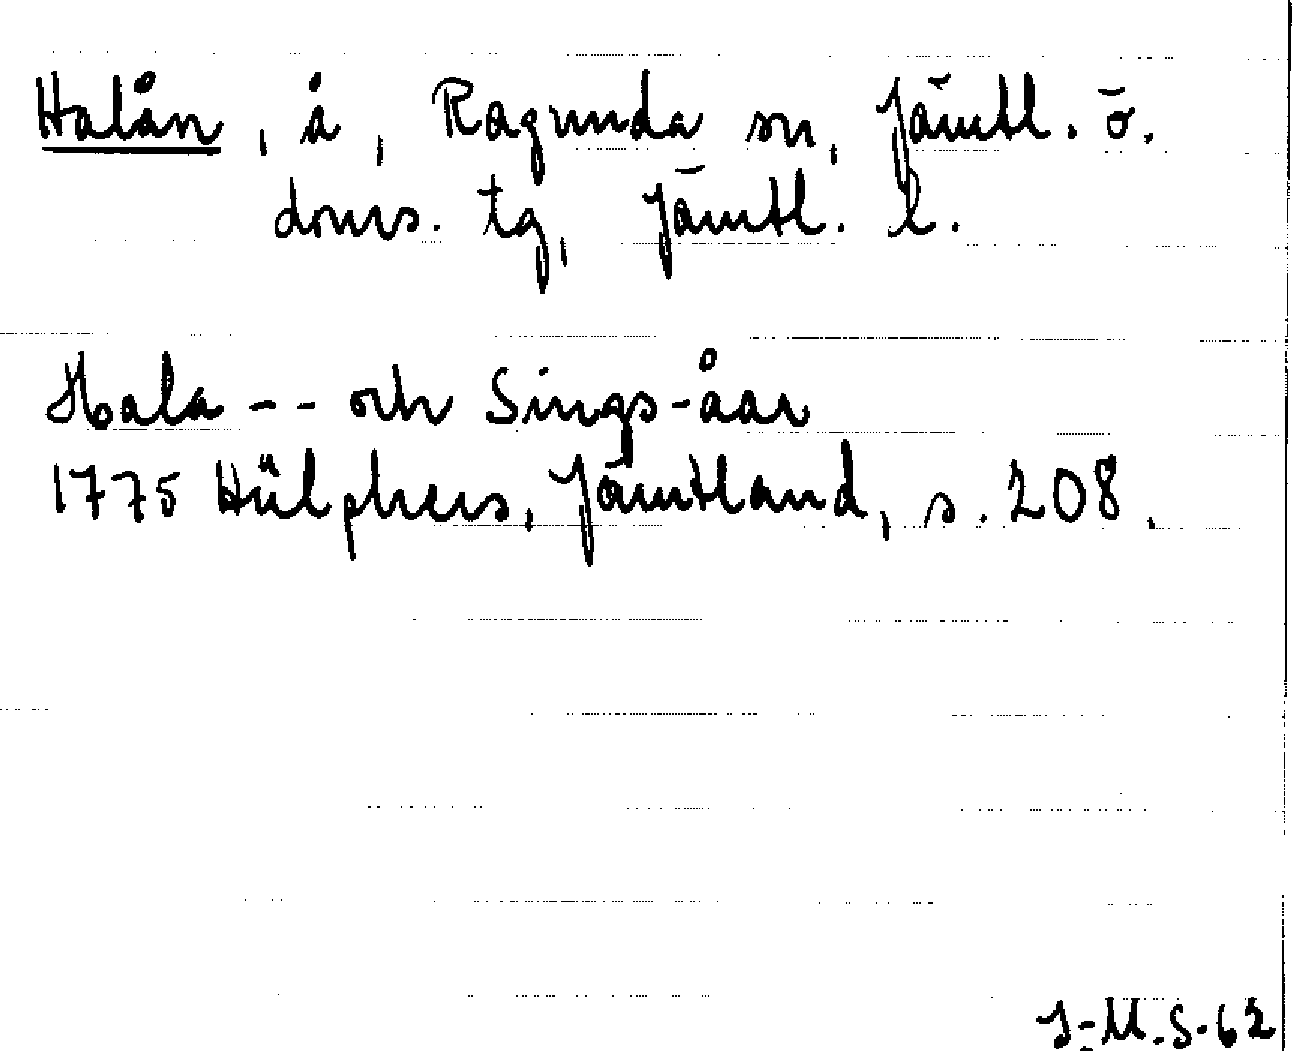 Halån, å, Ragunda sn, Jämtl. ö.
doms. tg, Jämtl. l.
Hala -- och Sings-åar
1775 Hülphers, Jämtland, s. 208.
I-M.S.62